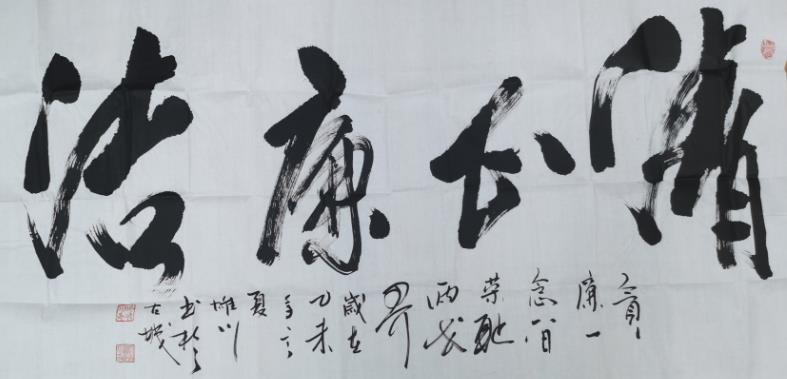 清正廉洁
贪
廉一
念间
荣耻
两世
界
岁在
乙未
年之
夏
雄川
书於
古城